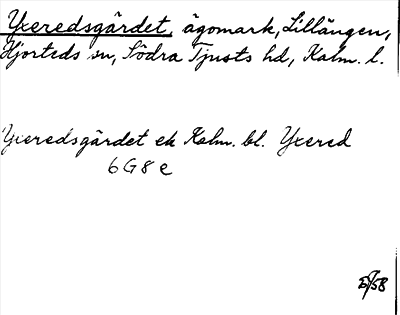 Yxeredsgärdet, ägomark, Lillängen,
Hjorteds sn, Södra Tjusts hd, Kalm. l.
Yxeredsgärdet ek Kalm. bl. Yxered
6 G 8 e
/58